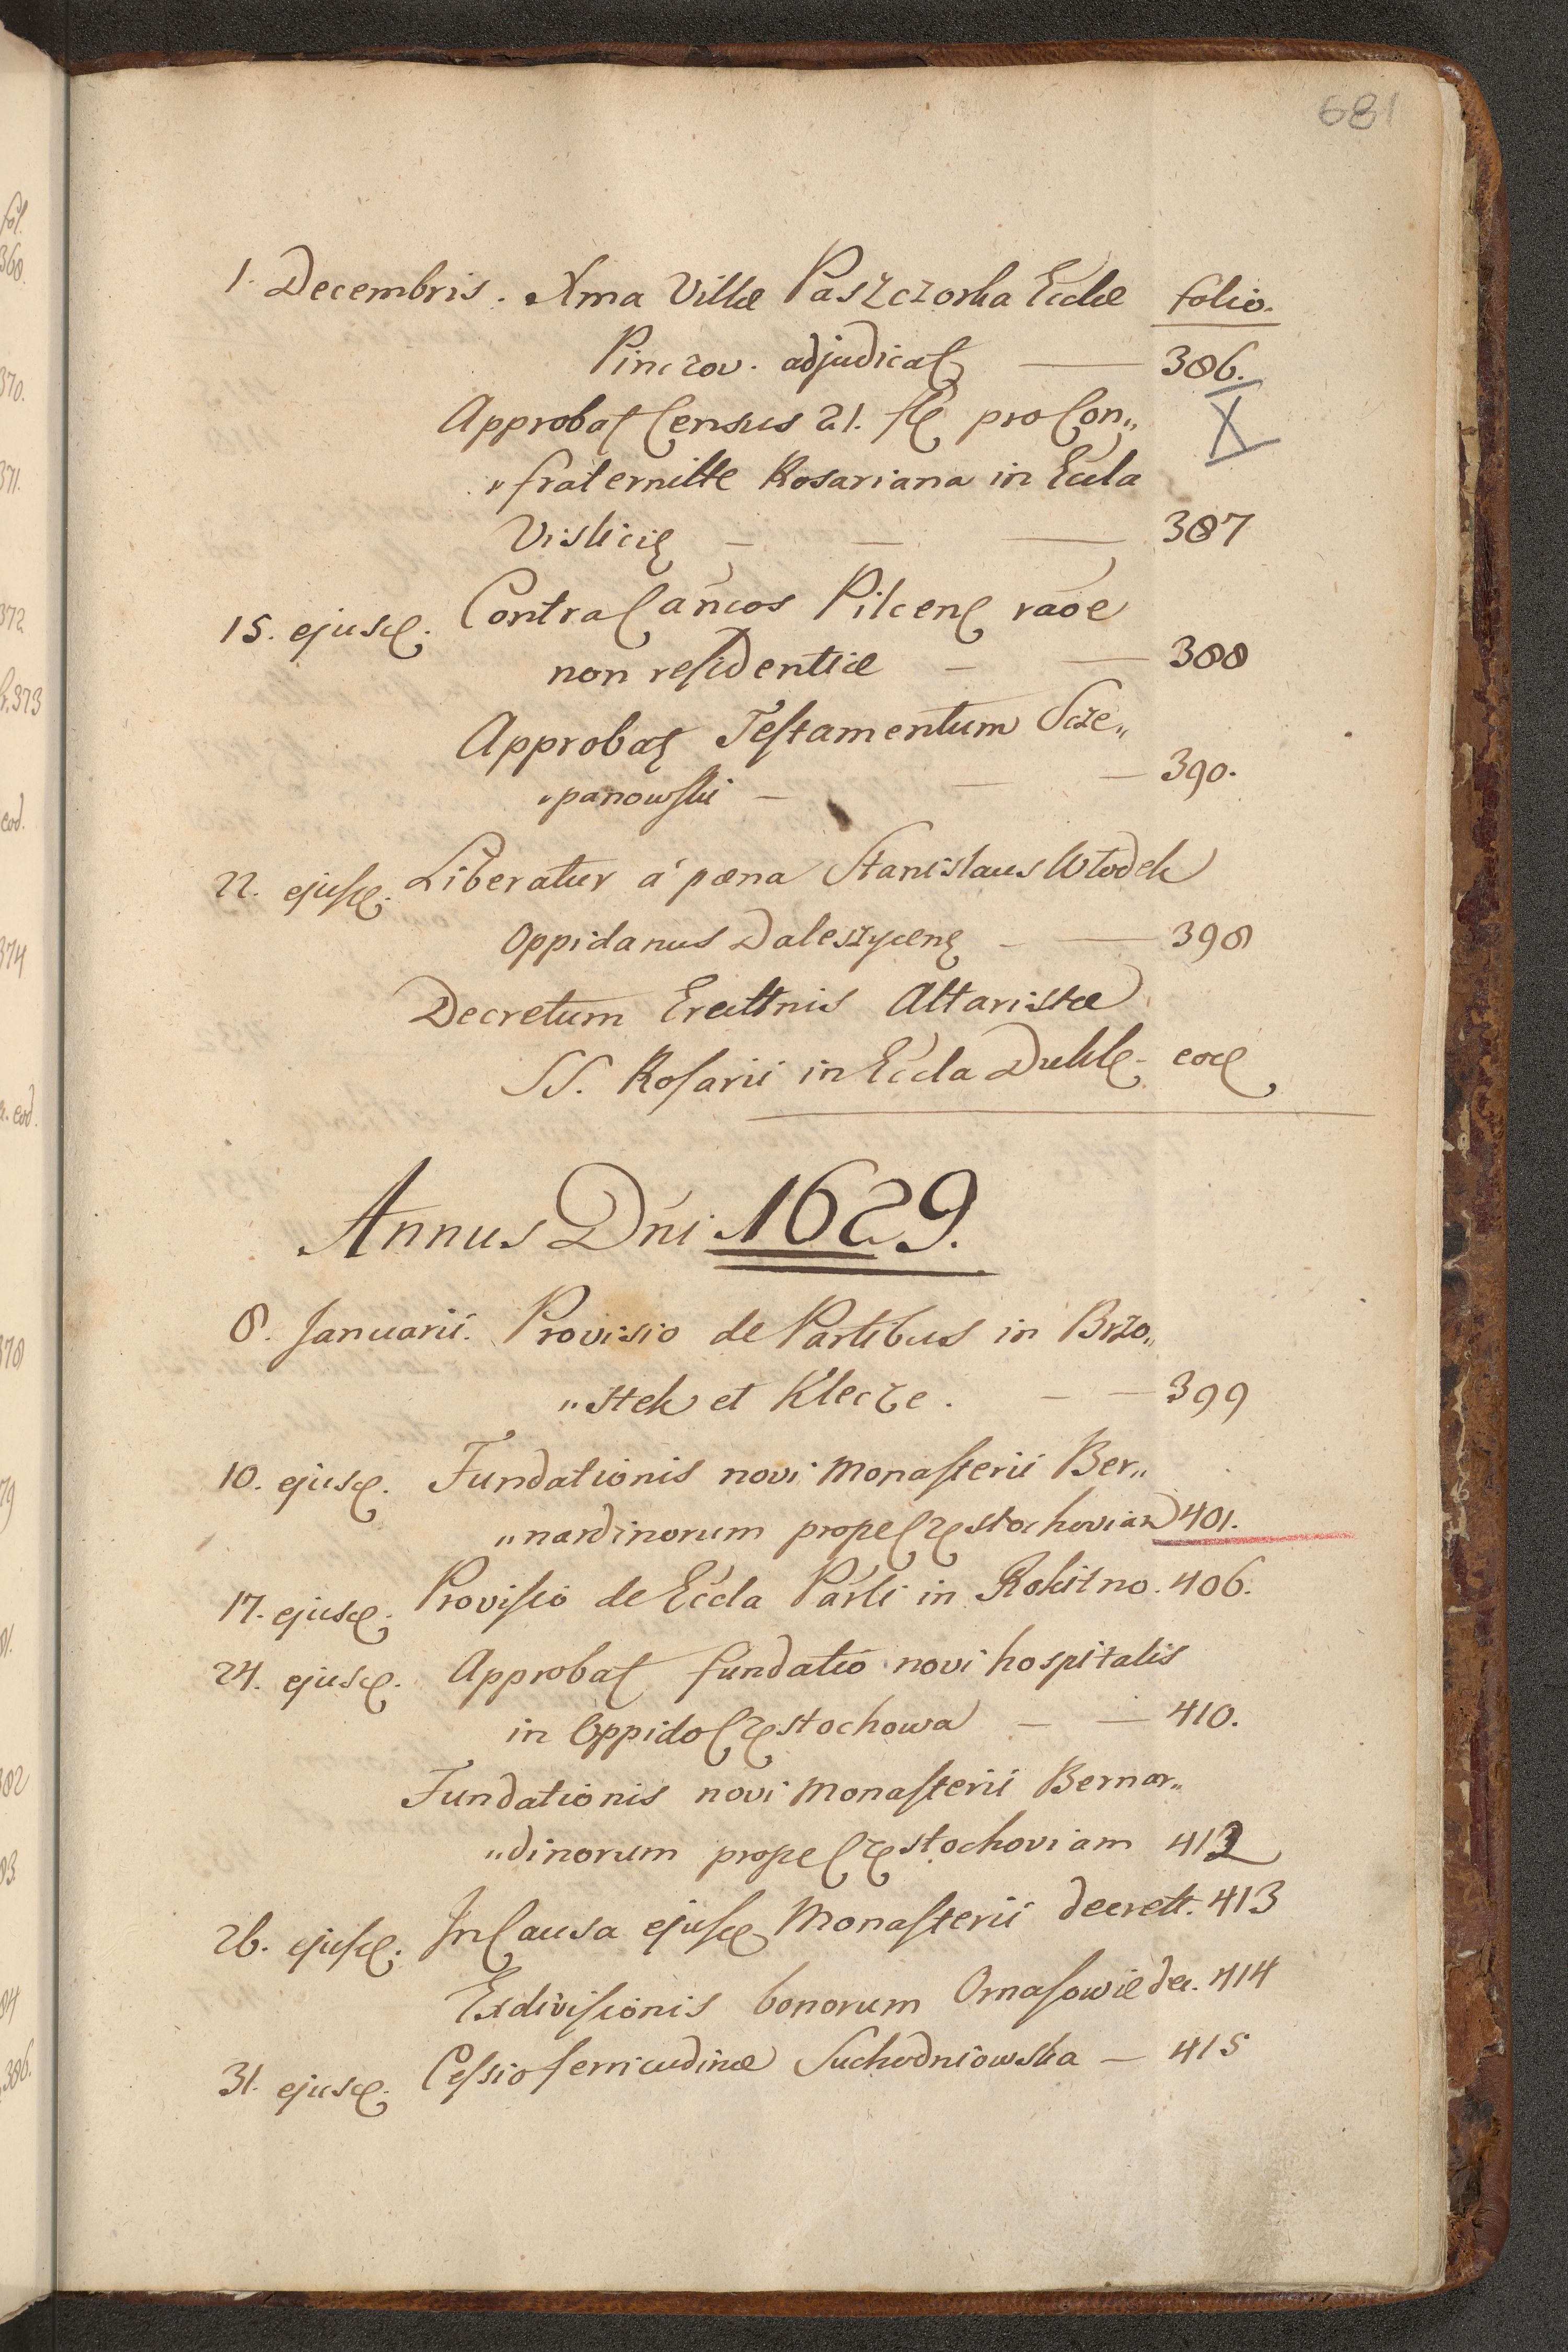 681
1. Decembris. Xma Villæ Paszczorka Eccłæ folio.
Pinczov. adjudicatꝫ — 386.
X
Approbatꝭ Census 21. flꝭ pro Con„
„fraternitte Rosariana in Eccla
Vislicięꝭ — — — 387
15. ejusdꝭ. Contra Can̄cos Pilcenꝭ rāoe
non reſidentiæ — — 388
Approbatꝭ Teſtamentum Szcze„
„panowſki — — — 390.
22. ejuſdꝭ. Liberatur á pœna Stanislaus Włodek
Oppidanus Daleszycenꝭ — — 398
Decretum Erecttnis Altaristæ
SS. Roſarii in Eccla Duklꝭ. eodꝭ
Annus Dn̄i 1629.
8. Januarii. Provisio de Partibus in Brzo„
„stek et Klecze. — — 399
10. ejusdꝭ. Fundationis novi Monaſterii Ber„
„nardinorum prope Częstochovian 401.
17. ejusdꝭ. Proviſio de Eccla Parli in Rokitno. 406.
24. ejusdꝭ. Approbatꝭ fundatio novi hospitalis
in Oppido Częstochowa — — 410.
Fundationis novi Monaſterii Bernar„
„dinorum prope Częstochoviam 412
26. ejuſdꝭ. In Causa ejuſdꝭ Monaſterii decrett. 413
Exdiviſionis bonorum Ornaſowiæ dec. 414
31. ejusdꝭ. Ceſsio ferricudinæ Suchodniowska — 415